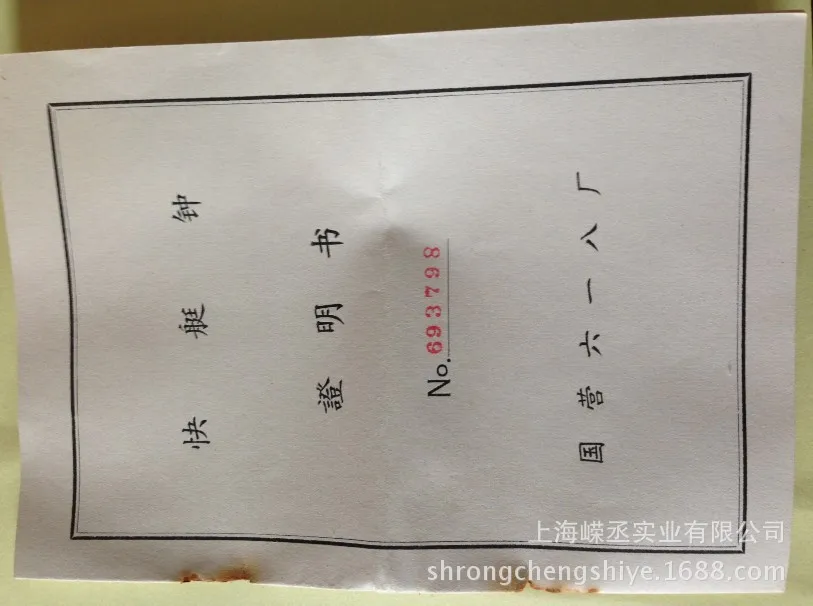 快艇钟
證明书
No. 693798
国营六一八厂
上海嵘丞实业有限公司
shrongchengshiye.1688.com